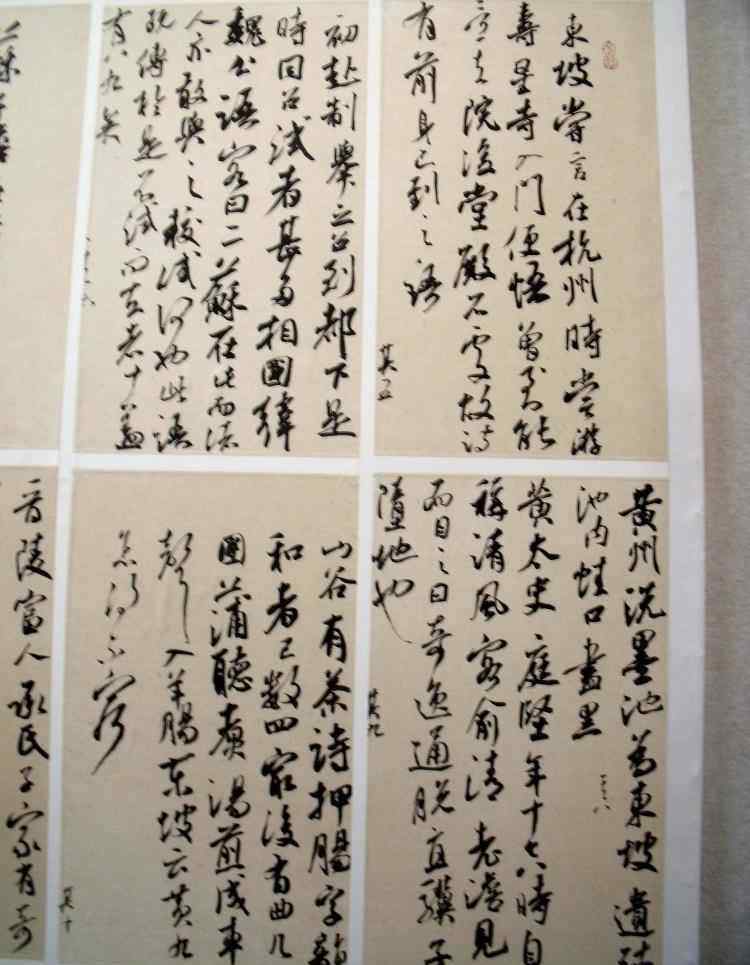 東坡嘗言在杭州時嘗游
壽星寺入門便悟曾到能
言其院後堂殿石處故詩
有前身已到之語
其五
初赴制舉之召到都下是
時同召試者甚多相國韓
魏公語客曰二蘇在此而諸
人亦敢與之較試何也此語
既傳於是不試而去者十蓋
有八九矣
黃州洗墨池為東坡遺
池內蛙口盡黑
其八
黃太史庭堅年十七八時自
稱清風客俞清老澹見
而目之曰奇逸通脫真驥子
墮地也
其九
山谷有茶詩押腸字韻
和者已數四最後有曲几
團蒲聽煮湯煎成車
聲入羊腸東坡云黃九
怎得不窮
其十
晉陵富人承氏子家有奇